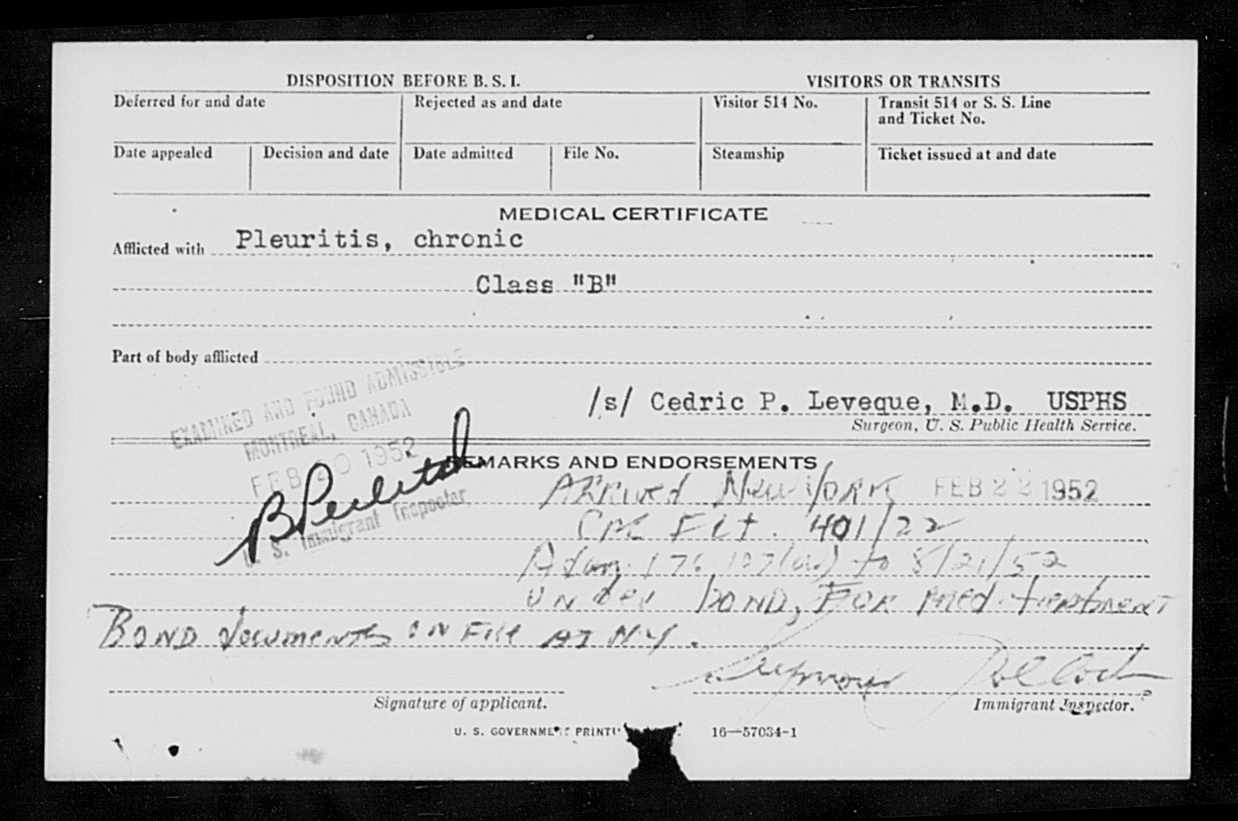 DISPOSITION BEFORE B. S. I.
VISITORS OR TRANSITS
Deferred for and date
Rejected as and date
Visitor 514 No.
Transit 514 or S. S. Line and Ticket No.
Date appealed
Decision and date
Date admitted
File No.
Steamship
Ticket issued at and date
MEDICAL CERTIFICATE
Afflicted with Pleuritis, chronic
Class "B"
Part of body afflicted
EXAMINED AND FOUND ADMISSIBLE
MONTREAL, CANADA
FEB 20 1952
U. S. Immigrant Inspector
/s/ Cedric P. Leveque, M.D. USPHS
Surgeon, U. S. Public Health Service.
REMARKS AND ENDORSEMENTS
Arrived New York FEB 22 1952
Flt. 401/22
to 8/21/52
under bond, For med. treatment
Bond documents on File at N.Y.
Seymour
Signature of applicant.
Immigrant Inspector.
U. S. GOVERNMENT PRINTI
16—57034-1